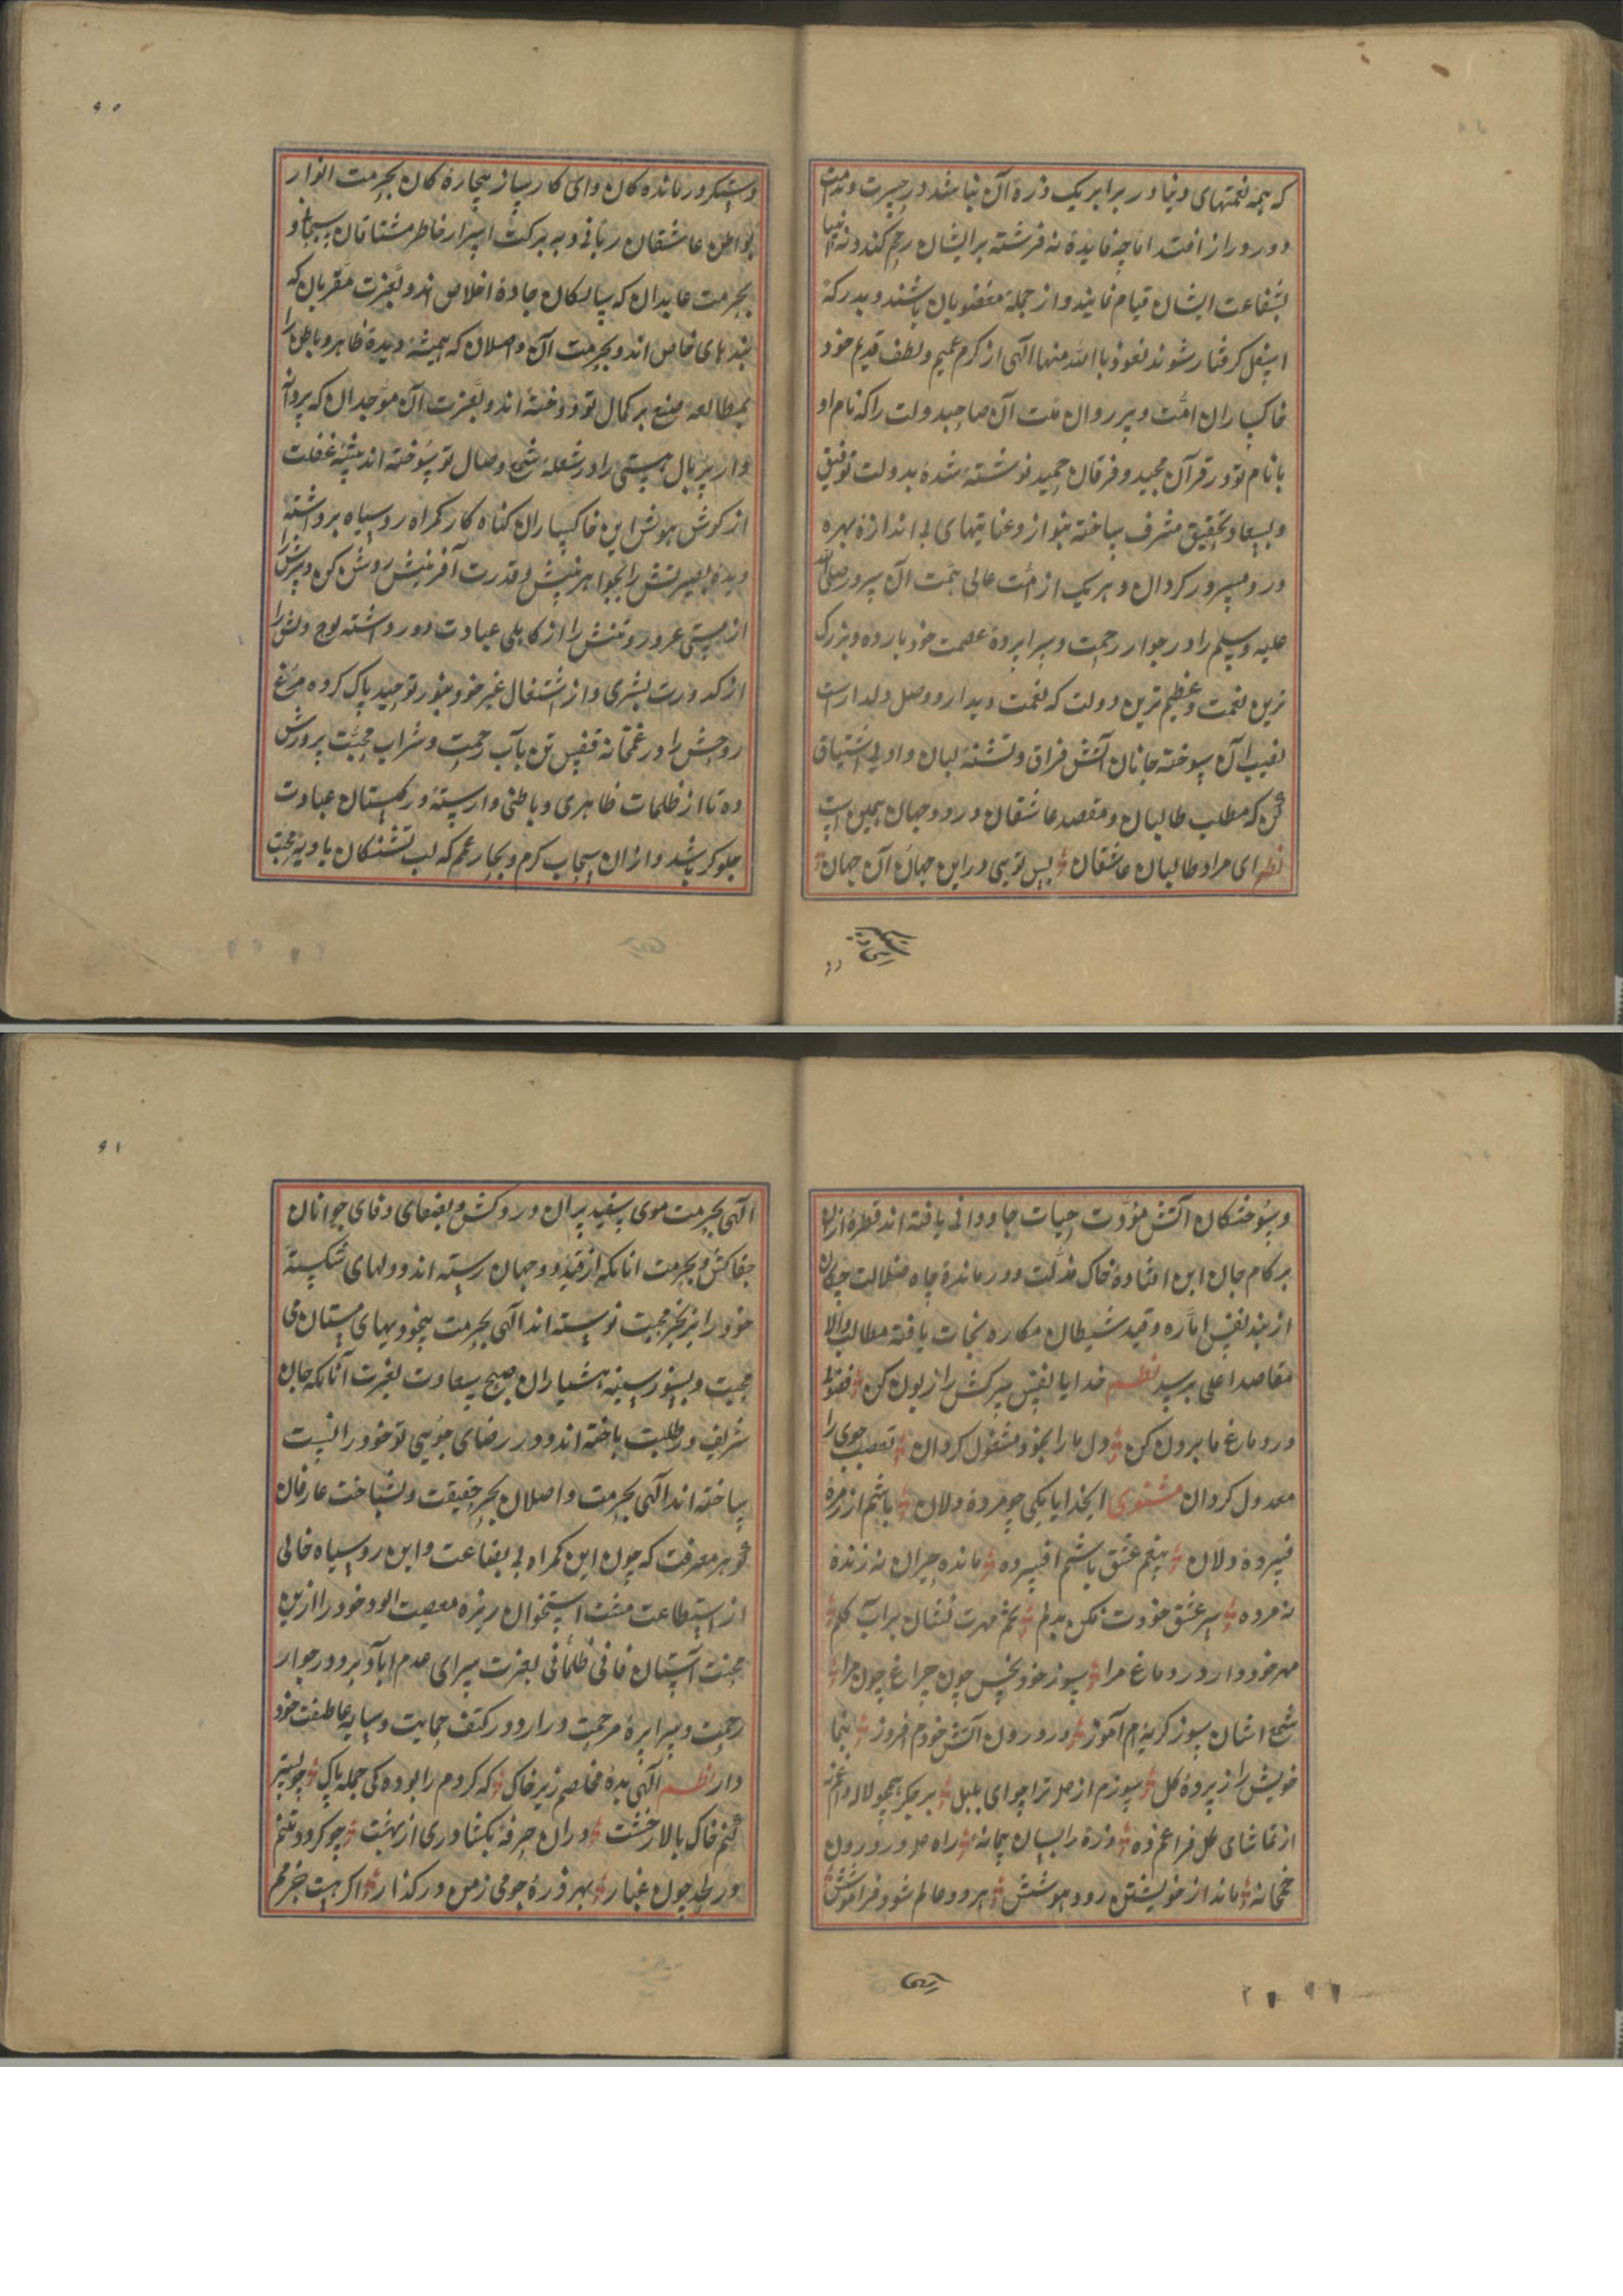 که همه نعمتهای دنیا در برابر یک ذره آن نباشد در حسرت و ندامت
دور دراز افتند اما چه فایده نه فرشته بر ایشان رحم کند و نه انبیا
بشفاعت ایشان قیام نمایند و از جمله مغضوبان باشند و بدرکهٔ
اسفل کرفتار شوند نعوذ باالله منها الهی از کرم عمیم و لطف قدیم خود
خاکساران امت و پیروان ملت آن صاحبدولت را که نام او
با نام تو در قرآن مجید و فرقان حمید نوشته شده بدولت توفیق
و بسعادت تحقیق مشرف ساخته بنواز و عنایتهای بی اندازه بهره
ور و مسرور کردان و هر یک از امت عالی همت آن سرور صلی الله
علیه و سلم را در جوار رحمت و سراپرده عصمت خود بار ده و بزرک
ترین نعمت و عظیم ترین دولت که نعمت دیدار و وصل دلدار است
نصیب آن سوخته جانان آتش فراق و تشنه لبان وادی اشتیاق
کن که مطلب طالبان و مقصد عاشقان در دو جهان همین است
نظم ای مراد طالبان عاشقان بس تویی در این جهان آن جهان
دستکیر درمانده کان و ای کارساز بیچاره کان بحرمت انوار
بواطن عاشقان ربانی و به برکت اسرار خاطر مشتاقان سبحانی و
بحرمت عابدان که سالکان جادهٔ اخلاص اند و بعزت مقربان که
بندهای خاص اند و بحرمت آن واصلان که همیشه دیدهٔ ظاهر و باطن را
بمطالعه صنع بر کمال تو دوخته اند و بعزت آن موحدان که پروانه
وار پر بال هستی را در شعلهٔ شمع وصال تو سوخته اند پنبهٔ غفلت
از کوش هوش این خاکساران کناه کار کمراه روسیاه برداشته
دیدهٔ بصیرتش را بجواهر بینش و قدرت آفرینش روشن کن و سرش را
از مستی غرور و تنش را از کاهلی عبادت دور داشته لوح دلش را
از کدورت بشری و از اشتغال غیر خود بنور توحید پاک کرده مرغ
روحش را در غمخانه قفس تن بآب رحمت و شراب محبت پرورش
ده تا از ظلمات ظاهری و باطنی وارسته در کلستان عبادت
جلوکر باشد و از ان سحاب کرم و بحار عمم که لب تشنکان بادیه محبت
و سوختکان آتش مودت حیات جاودانی یافته اند قطرهٔ از ان
بر کام جان این افتاده خاک مذلت و درماندهٔ چاه ضلالت چکان
از بند نفس اماره و قید شیطان مکاره نجات یافته مطالب والا
مقاصد اعلی برسد نظم خدایا نفس سرکش را زبون کن فضول
در دماغ ما برون کن دل ما را بخود مشغول کردان تعصب جوی را
معدول کردان مثنوی ایخدایا یکی چو مرده دلان باشم از زمرهٔ
فسرده دلان بیغم عشق باشم افسرده مانده حیران نه زنده
نه مرده سر عشق خودت فکن بدلم تخم مهرت نشان بر اب کلم
مهر خود دار در دماغ مرا سوز خود بخش چون چراغ چون مرا
شمع اشان سوز کریه ام آموز در درون آتش خودم افروز بنما
خویش را ز پردهٔ کل سوزم از مل ترا چو ای بلبل بر جکر همچو لاله داغم نه
از تماشای کل فراغم ده ذره را بسان پیمانه راه مل در درون
خمخانه ماند از خویشتن رود هوشش هر دو عالم شود فراموشش
الهی
الهی بحرمت موی سفید پیران درد کش و بصفای وفای جوانان
جفاکش و بحرمت انانکه از قید دو جهان رسته اند و دلهای شکسته
خود را بزنجیر محبت توبسته اند الهی بحرمت بیخودیهای مستان می
محبت و بسوز سینه هشیاران صبح سعادت بعزت آنانکه جان
شریف در طلبت باخته اند و در رضای جویی تو خود را نیست
ساخته اند الهی بحرمت واصلان بحر حقیقت و شناخت عارفان
کوهر معرفت که چون این کمراه بی بضاعت و این روسیاه خالی
از استطاعت مشت استخوان ریزهٔ معصیت الود خود را از این
محنت آستان فانی ظلمانی بعزت سرای عدم اباد برد در جوار
رحمت و سراپرهٔ مرحمت در ار و در کنف حمایت و سایه عاطفت خود
دار نظم الهی بدهٔ مخلصم زیر خاک که کردم را بوده کی جمله پاک چو بستر
کنم خاک بالا ز خشت دران حرفه بکشا دری از بهشت چو کردد تنم
در لحد چون غبار بهر ذرهٔ جومی ز من در کذار اکر هست جرمم